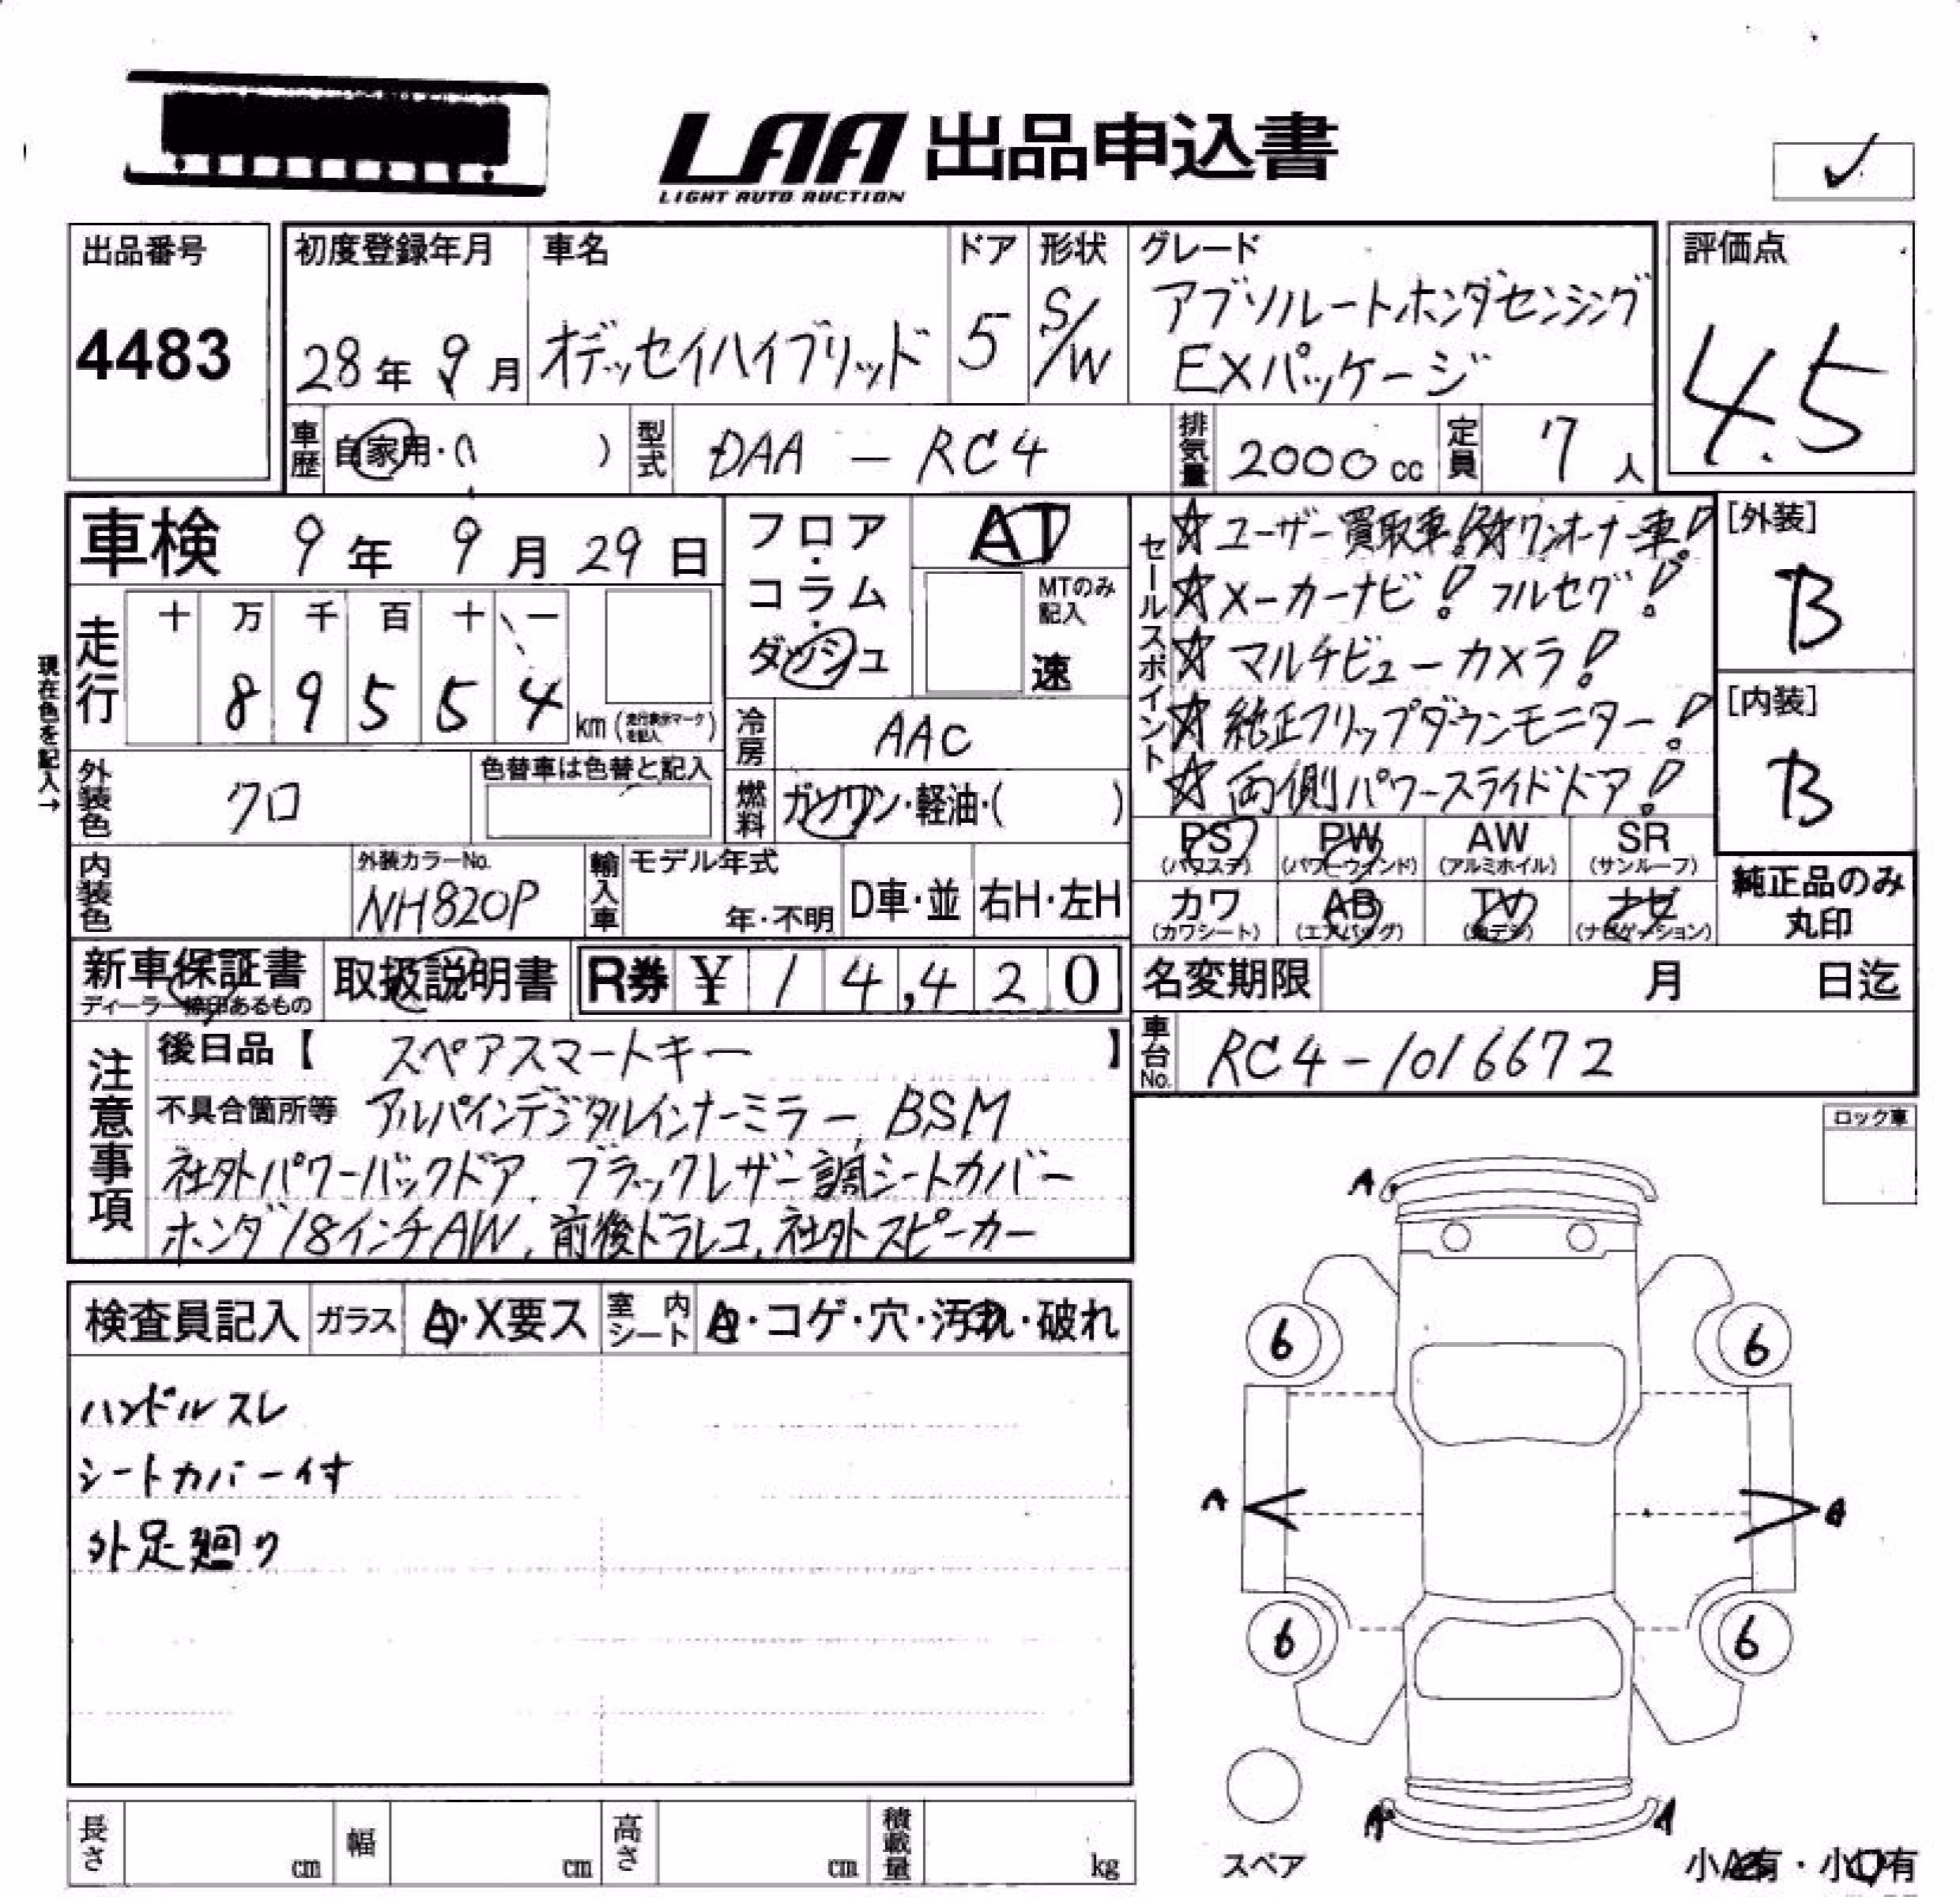 LAA 出品申込書
LIGHT AUTO AUCTION
出品番号
4483
初度登録年月
28年 9月
車名
オデッセイハイブリッド
ドア
5
形状
S/W
グレード
アブソルートホンダセンシング
EXパッケージ
評価点
4.5
車歴 自家用・( )
型式 DAA - RC4
排気量 2000cc
定員 7人
車検 9年 9月 29日
現在色を記入→
走行
十 万 千 百 十 一
8 9 5 5 4 km (走行表示マークを記入)
フロア・コラム・ダッシュ
AT
MTのみ記入
速
冷房 AAC
燃料 ガソリン・軽油・( )
外装色 クロ
色替車は色替と記入
内装色
外装カラーNo.
NH820P
輸入車
モデル年式
年・不明
D車・並
右H・左H
セールスポイント
☆ユーザー買取車!☆ワンオーナー車!
☆メーカーナビ! フルセグ!
☆マルチビューカメラ!
☆純正フリップダウンモニター!
☆両側パワースライドドア!
[外装]
B
[内装]
B
PS (パワステ)
PW (パワーウインド)
AW (アルミホイル)
SR (サンルーフ)
カワ (カワシート)
AB (エアバッグ)
TV
ナビ (ナビゲーション)
純正品のみ
丸印
新車保証書
取扱説明書
R券 ¥ 14,420
名変期限 月 日迄
車台No. RC4-1016672
注意事項
後日品【 スペアスマートキー 】
不具合箇所等 アルパインデジタルインナーミラー, BSM
社外パワーバックドア, ブラックレザー調シートカバー
ホンダ18インチAW, 前後ドラレコ, 社外スピーカー
ロック車
検査員記入
ガラス A・X要ス
室内シート ・コゲ・穴・汚れ・破れ
ハンドルスレ
シートカバー付
外足廻り
A
6 6
A
6 6
A A
スペア
長さ cm
幅 cm
高さ cm
積載量 kg
小A有・小 有